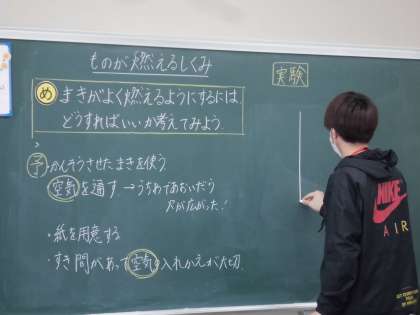 ものが燃えるしくみ
実験
め まきがよく燃えるようにするには
どうすればいいか考えてみよう。
予 かんそうさせたまきを使う
空気を通す → うちわであおいだら
穴が広がった!
・紙を用意する
・すき間があって空気の入れかえが大切
NIKE
AIR